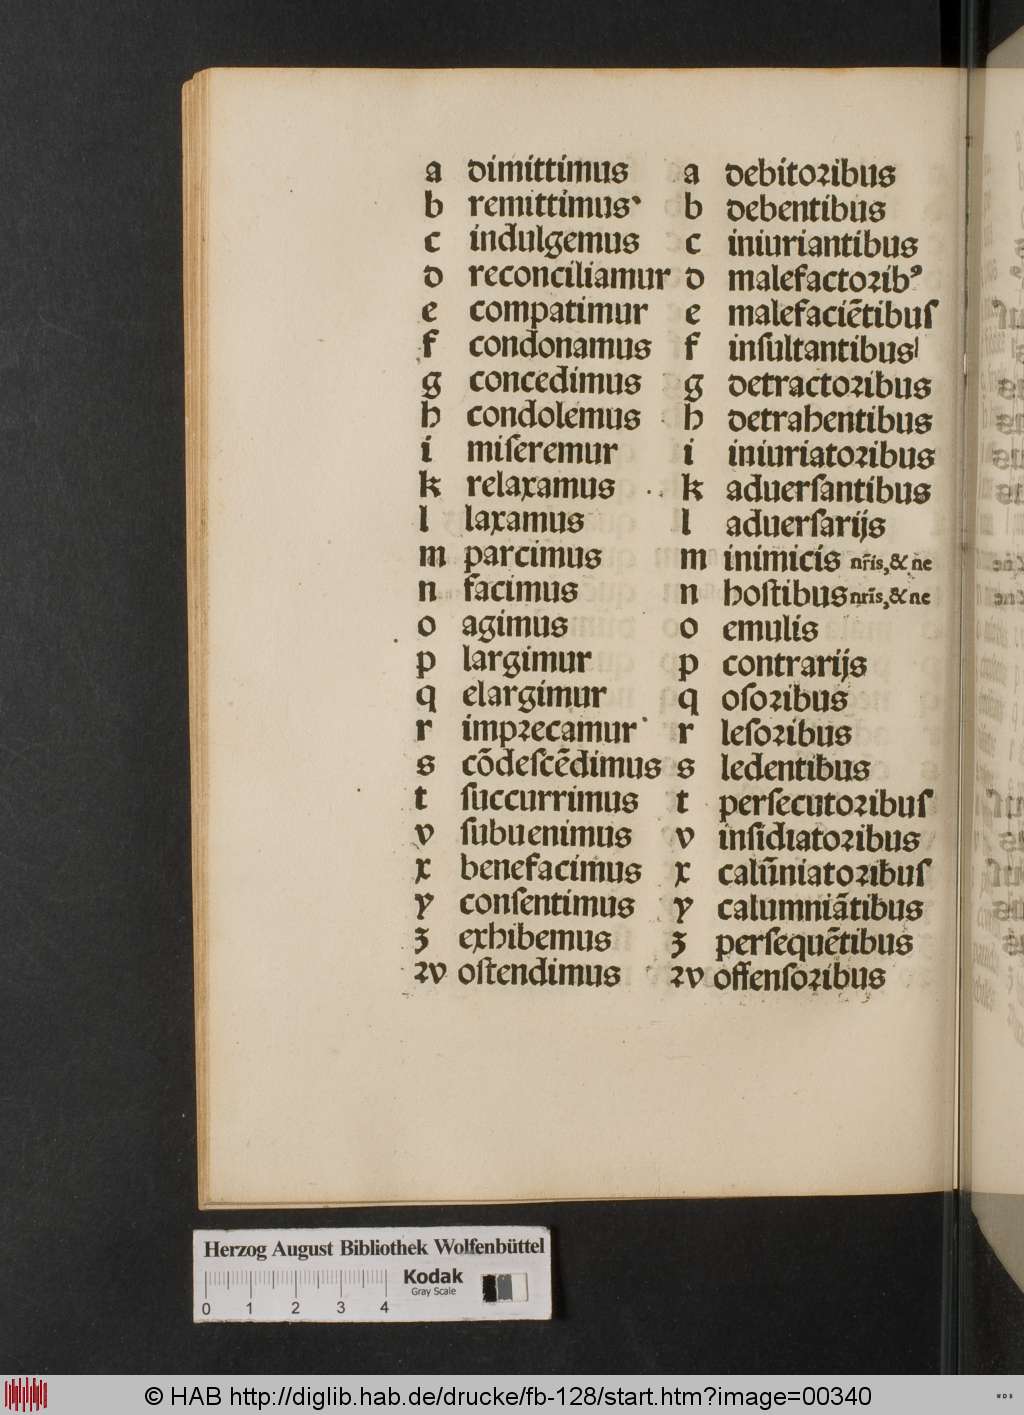 a dimittimus a debitoꝛibus
b remittimus b debentibus
c indulgemus c iniuriantibus
d reconciliamur d malefactoꝛibꝰ
e compatimur e malefaciẽtibuſ
f condonamus f inſultantibus
g concedimus g detractoꝛibus
h condolemus h detrahentibus
i miſeremur i iniuriatoꝛibus
k relaxamus k aduerſantibus
l laxamus l aduerſarijs
m parcimus m inimicis nr̃is,&ne
n facimus n hoſtibus nrĩs,&ne
o agimus o emulis
p largimur p contrarijs
q elargimur q oſoꝛibus
r impꝛecamur r leſoꝛibus
s cõdeſcẽdimus s ledentibus
t ſuccurrimus t perſecutoꝛibuſ
v ſubuenimus v inſidiatoꝛibus
x benefacimus x calũniatoꝛibuſ
y conſentimus y calumniãtibus
ʒ exhibemus ʒ perſequẽtibus
ꝛv oſtendimus ꝛv offenſoꝛibus
Herzog August Bibliothek Wolfenbüttel
Kodak
Gray Scale
0 1 2 3 4
© HAB http://diglib.hab.de/drucke/fb-128/start.htm?image=00340
WDB